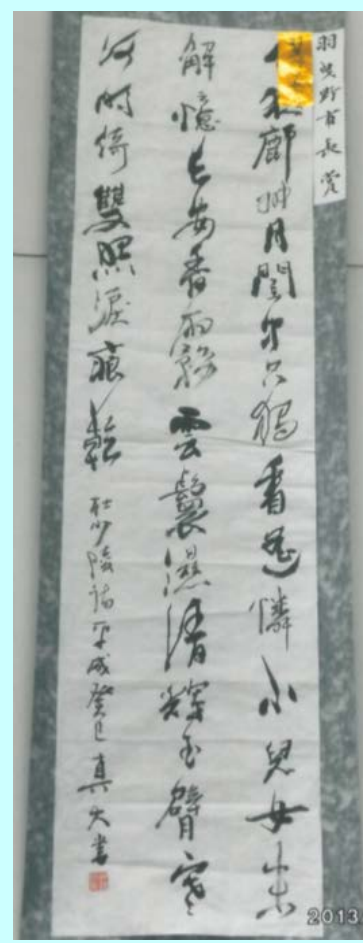 羽曳野市長賞
今夜鄜州月閨中只獨看遥憐小兒女未
解憶長安香霧雲鬟濕清輝玉臂寒
何時倚雙照淚痕乾 杜少陵詩 平成癸巳 真大書
2013